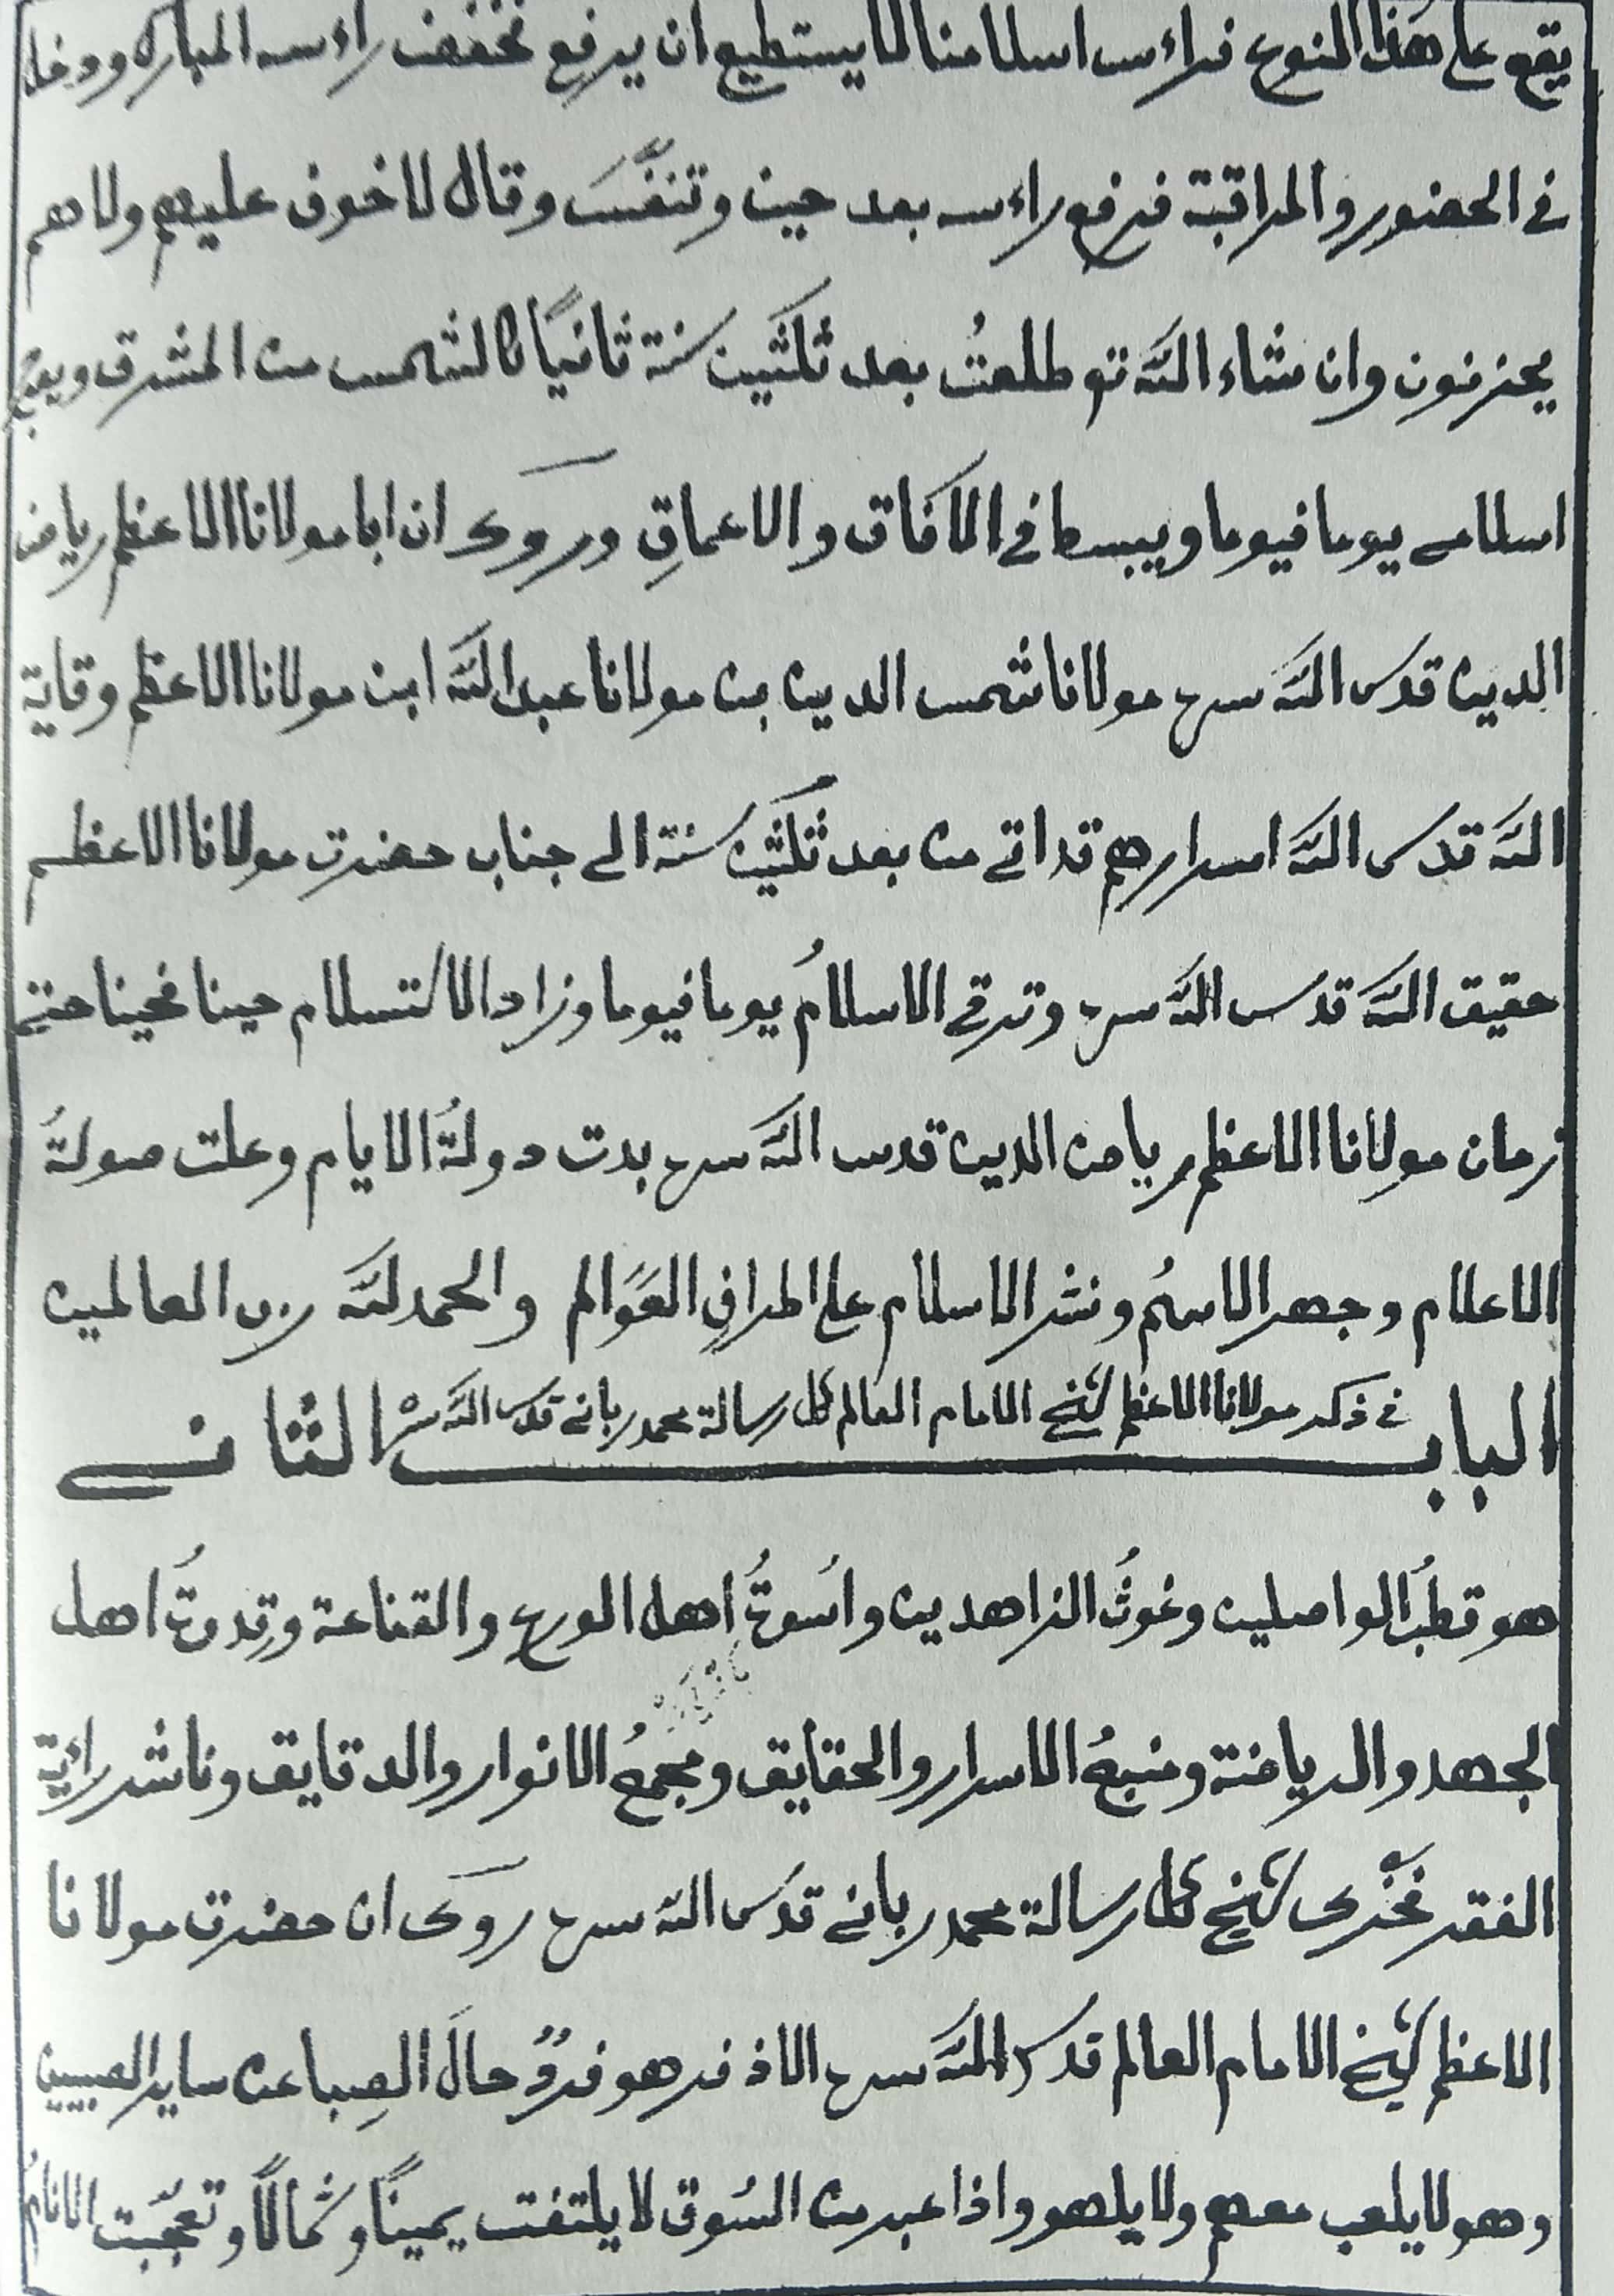 يقع على هذا النوع فراءس اسلامنا لا يستطيع ان يرفع فخفف راءسه المبارك ودخل
في الحضور والمراقبة فرفع راءسه بعد حين وتنفّس وقال لا خوف عليهم ولا هم
يحزنون وان شاء اللّه تو طلعتُ بعد ثلثين سنة ثانيًا كالشمس من المشرق ويفتح
اسلامى يوما فيوما ويبسط فى الآفاق والاعماقِ وروى ان ابا مولانا الاعظم رياض
الدين قدس اللّه سره مولانا شمس الدين بن مولانا عبد اللّه ابن مولانا الاعظم وقاية
اللّه قدس اللّه اسرارهم قد اتى من بعد ثلثين سنة الى جناب حضرت مولانا الاعظم
حقيق اللّه قدس اللّه سره وترقى الاسلامُ يوما فيوما وزاد الاستسلام حينا فحينا حتى
زمان مولانا الاعظم رياض الدين قدس اللّه سره بدت دولةُ الايام وعلت صولةُ
الاعلام وجهر الاسمُ ونشر الاسلام على اطرافِ العَوَالم والحمد للّه رب العالمين
الباب الثانى فى ذكر مولانا الاعظم شيخ الامام العالم كل رسالة محمد ربانى قدس اللّه سره
هو قطبُ الواصلين وغوثُ الزاهدين واسُوةُ اهل الورع والقناعة وقِدوةُ اهل
الجهد والرياضة ومنبعُ الاسرار والحقايق ومجمعُ الانوار والدقايق وناشر راءية
الفقر فخرى شيخ كل رسالة محمد ربانى قدس اللّه سره روى ان حضرت مولانا
الاعظم شيخ الامام العالم قدس اللّه سره الاذفر هو فردٌ حالَ الصِبا عن ساير الصبيين
وهو لا يلعب معهم ولا يلهو واذا عبر من السُوق لا يلتفت يمينًا وشمالًا وتعجّبت الانامُ